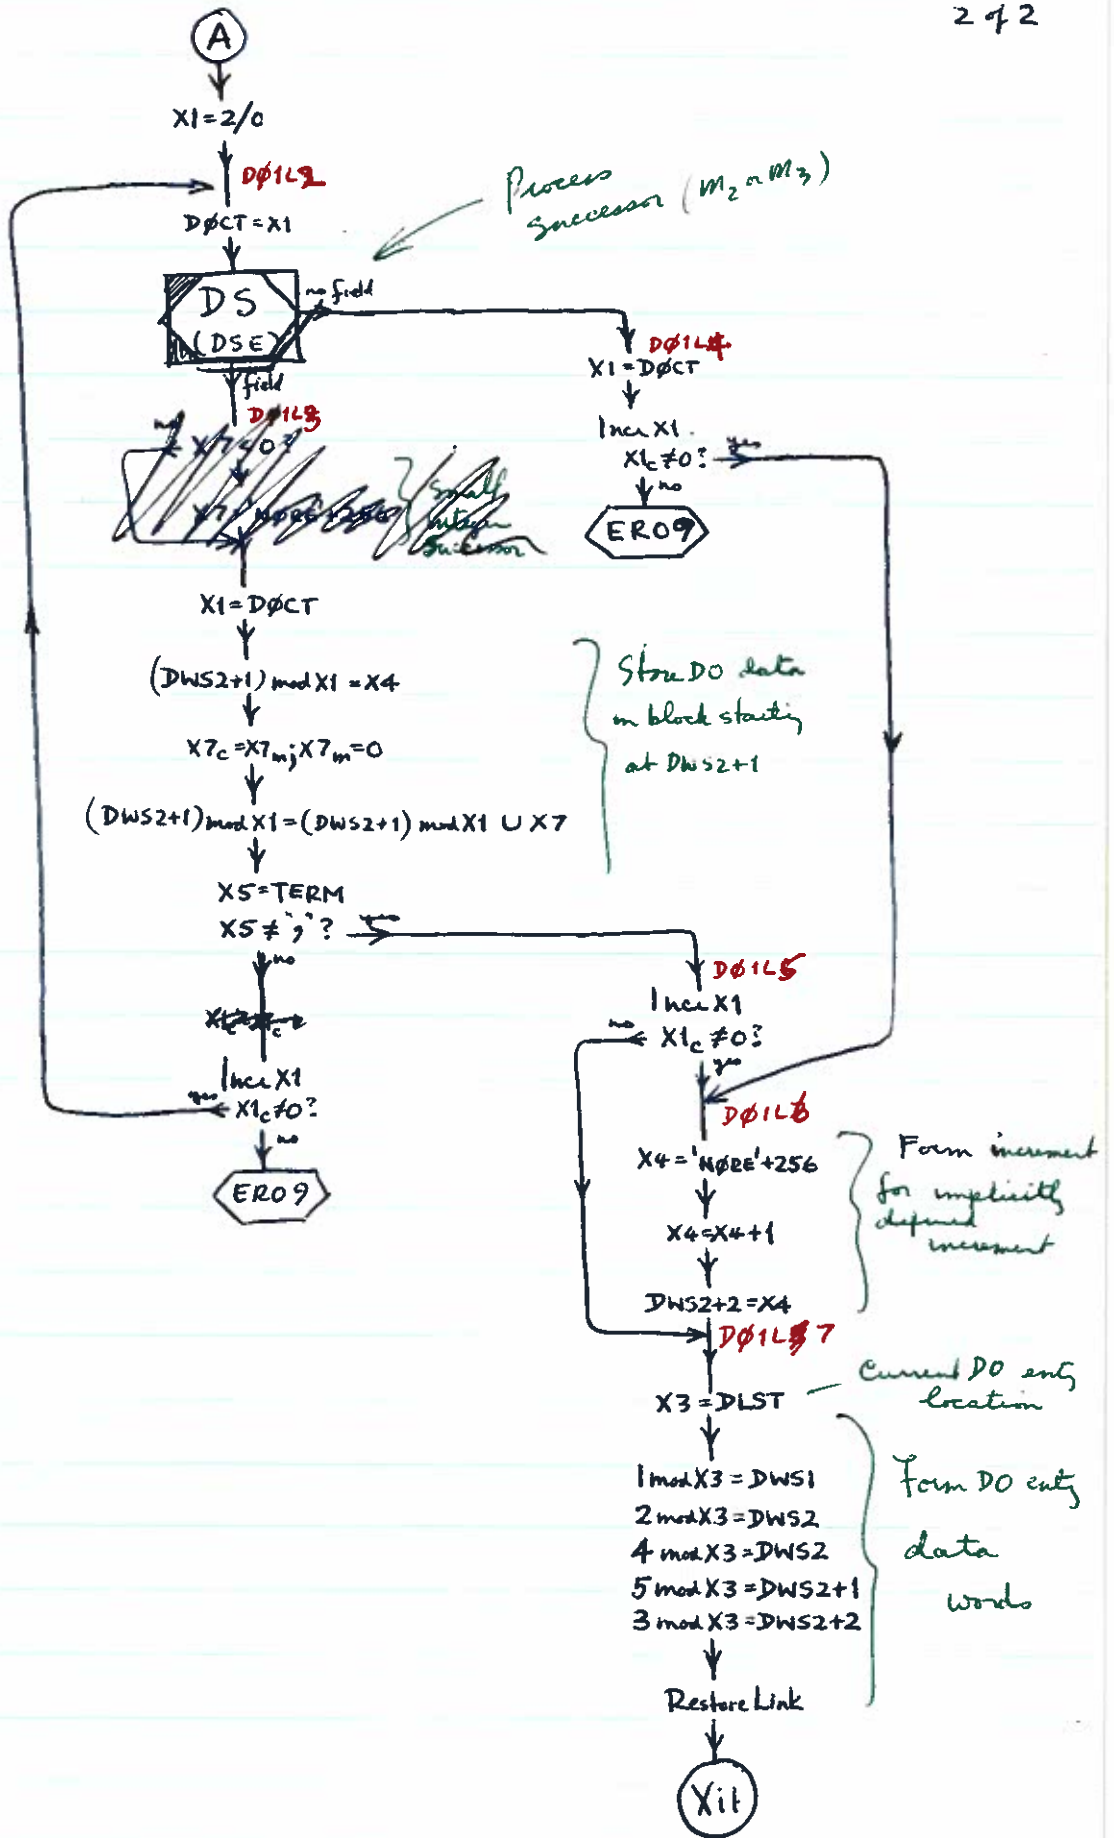 2 of 2
A
X1=2/0
DØ1L2
DØCT=X1
Process
Successor (m2 or m3)
DS
(DSE)
no field
field
DØ1L4
X1=DØCT
Incr X1
X1c≠0?
yes
no
ER09
DØ1L3
no
X7<0?
small
integer
successor
X1=DØCT
(DWS2+1) mod X1 = X4
X7c=X7m; X7m=0
(DWS2+1) mod X1=(DWS2+1) mod X1 ∪ X7
Store DO data
in block starting
at DWS2+1
X5=TERM
X5≠","?
yes
no
Incr X1
X1c≠0?
yes
no
ER09
DØ1L5
Incr X1
X1c≠0?
no
yes
DØ1L6
X4='NØRE'+256
X4=X4+1
DWS2+2=X4
Form increment
for implicitly
defined
increment
DØ1L7
X3=DLST
Current DO entry
location
1 mod X3=DWS1
2 mod X3=DWS2
4 mod X3=DWS2
5 mod X3=DWS2+1
3 mod X3=DWS2+2
Form DO entry
data
words
Restore Link
Xit